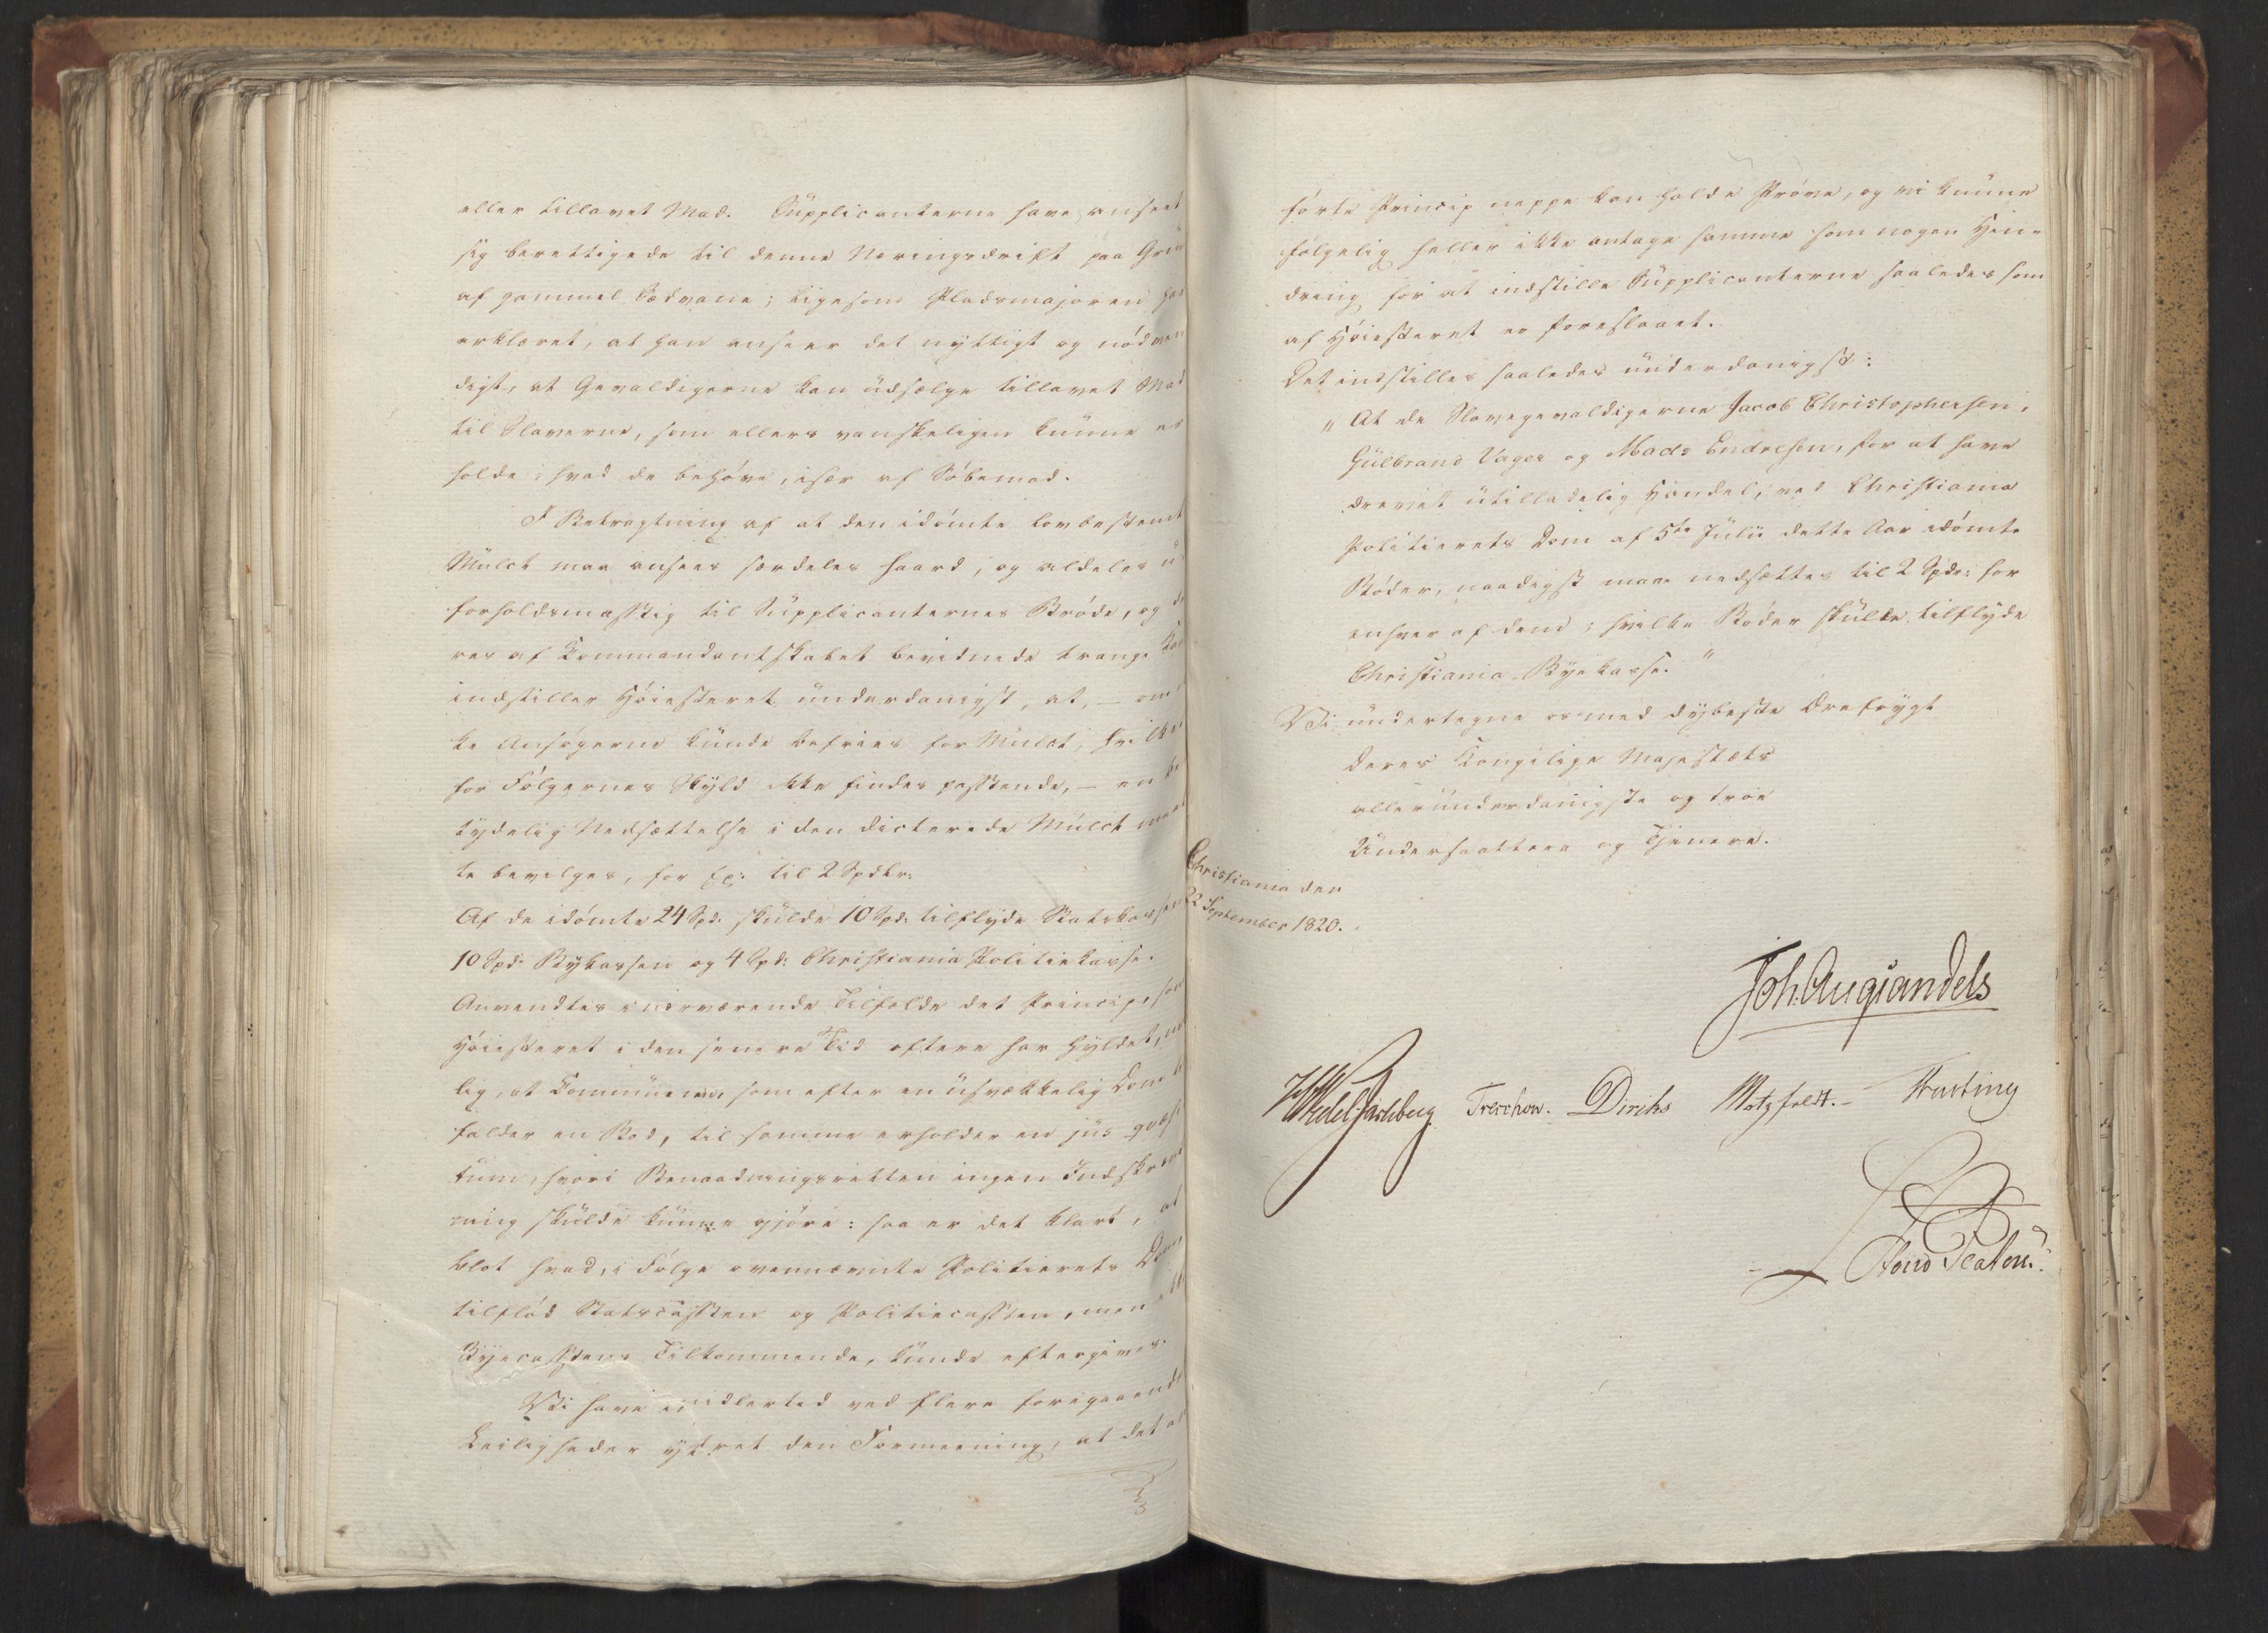 eller tillavet Mad. Supplicanterne have anseet
sig berettigede til denne Næringsdrift paa Grund
af gammel Sædvane; ligesom Pladsmajoren har
erklæret, at han anseer det nyttigt og nødven
digt, at Gevaldigerne kan udsælge tillavet Mad
til Slaverne, som ellers vanskeligen kunne er
holde, hvad de behøve, især af Søbemad.
I Betragtning af at den idømte lovbestemt
Mulct maa ansees særdeles haard, og aldeles u
forholdsmæssig til Supplicanternes Brøde, og de
res af Kommandantskabet bevidnede trange Kaar
indstiller Høiesteret underdanigst, at, – om
ke Ansøgerne kunde befries for Mulct, hvilket
for Følgernes Skyld ikke findes passende, – en be
tydelig Nedsættelse i den dicterede Mulct maat
te bevilges, for Ex: til 2 Spdlr:
Af de idømte 24 Spd: skulde 10 Spd: tilflyde Statskassen
10 Spd: Bykassen og 4 Spd: Christiania Politiekasse.
Anvendtes i nærværende Tilfælde det Princip, som
Høiesteret i den senere Tid oftere har hyldet, nem
lig, at Communerne, som efter en usvækkelig Dom til
falder en Bod, til samme erholder en jus quæsi
tum, hvori Benaadningsretten ingen Indskrænk
ning skulde kunne gjøre: saa er det klart, at
blot hvad, i Følge ovennævnte Politierets Dom,
tilflød Statscassen og Politiecassen, men ikke
Byecassens Tilkommende, kunde eftergives.
Vi have imidlertid ved flere foregaaende
Leiligheder yttret den Formeening, at det an
førte Princip neppe kan holde Prøve, og vi kunne
følgelig heller ikke antage samme som nogen Hin-
dring for at indstille Supplicanterne saaledes som
af Høiesteret er foreslaaet.
Det indstilles saaledes underdanigst:
"At de Slavegevaldigerne Jacob Christophersen,
Gulbrand Vager og Mads Endresen, for at have
drevet utilladelig Handel, ved Christiania
Politierets Dom af 5te Julii dette Aar idømte
Bøder, naadigst maae nedsættes til 2 Spdr: for
enhver af dem; hvilke Bøder skulle tilflyde
Christiania Byekasse."
Vi undertegne os med dybeste Ærefrygt
Deres Kongelige Majestæts
allerunderdanigste og troe
Undersaattere og Tjenere.
Christiania den
22 September 1820.
Joh. Aug Sandels
HWedel Jarlsberg Treschow. Diriks Motzfeldt. Fasting